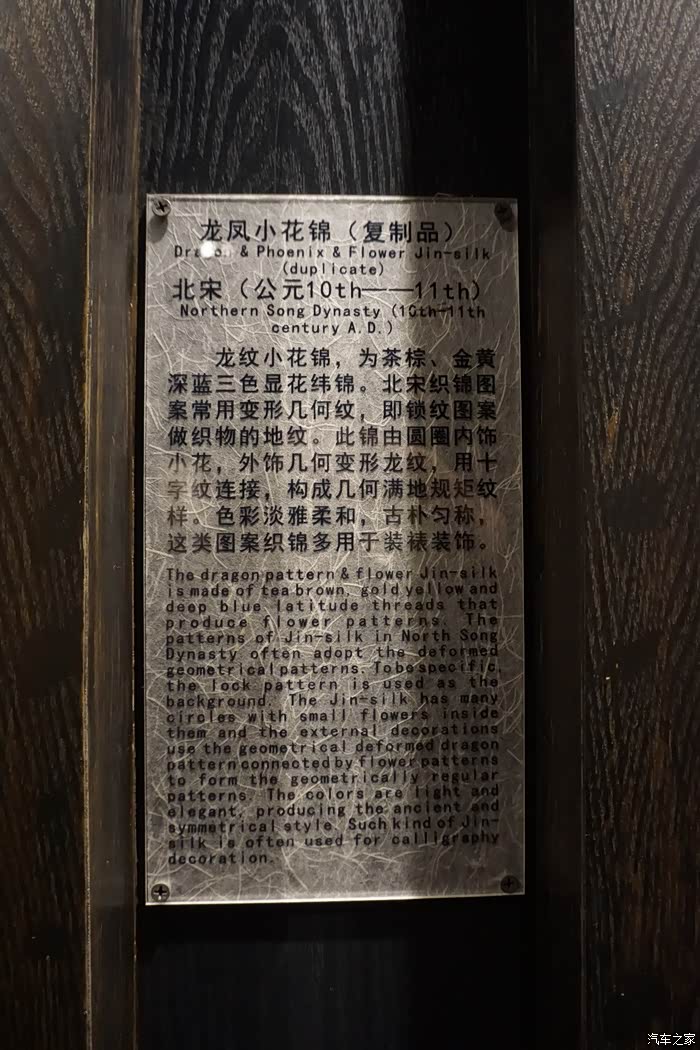 龙凤小花锦（复制品）
Dragon & Phoenix & Flower Jin-silk
(duplicate)
北宋（公元10th——11th）
Northern Song Dynasty (10th-11th
century A.D.)
龙纹小花锦，为茶棕、金黄
深蓝三色显花纬锦。北宋织锦图
案常用变形几何纹，即锁纹图案
做织物的地纹。此锦由圆圈内饰
小花，外饰几何变形龙纹，用十
字纹连接，构成几何满地规矩纹
样。色彩淡雅柔和，古朴匀称，
这类图案织锦多用于装裱装饰。
The dragon pattern & flower Jin-silk
is made of tea brown, gold yellow and
deep blue latitude threads that
produce flower patterns. The
patterns of Jin-silk in North Song
Dynasty often adopt the deformed
geometrical patterns. To be specific,
the lock pattern is used as the
background. The Jin-silk has many
circles with small flowers inside
them and the external decorations
use the geometrical deformed dragon
pattern connected by flower patterns
to form the geometrically regular
patterns. The colors are light and
elegant, producing the ancient and
symmetrical style. Such kind of Jin-
silk is often used for calligraphy
decoration.
汽车之家